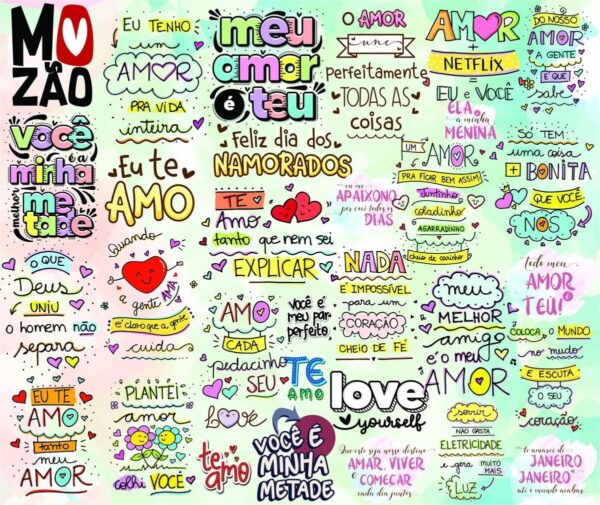 MO
ZÃO
EU TENHO
um
AMOR
PRA VIDA
inteira
meu
amor
é teu
O AMOR
une
perfeitamente
TODAS AS
coisas
AMOR
+
NETFLIX
=
EU e VOCÊ
DO NOSSO
AMOR
A GENTE
É QUE
sabe
ELA é
a minha
MENINA
você
é a
minha
melhor
me
tade
Eu te
AMO
Feliz dia dos
NAMORADOS
UM
AMOR
PRA FICAR BEM ASSIM
juntinho
coladinho
AGARRADINHO
cheio de carinho
SÓ TEM
uma coisa
+ BONITA
QUE VOCÊ
NÓS
TE
Amo
tanto que nem sei
EXPLICAR
eu me
APAIXONO
por você todos os
DIAS
O QUE
Deus
UNIU
o homem não
separa
Quando
a gente AMA
é claro que a gente
cuida
NADA
É IMPOSSÍVEL
para um
CORAÇÃO
CHEIO DE FÉ
meu
MELHOR
amigo
é o meu
AMOR
Todo meu
AMOR
É
TEU!
AMO
CADA
pedacinho
SEU
VOCÊ É
MEU PAR
PERFEITO
TE
AMO
COLOCA O MUNDO
no mudo
E ESCUTA
O SEU
coração
EU TE
AMO
tanto
meu
AMOR
PLANTEI
amor
colhi VOCÊ
Love
te
amo
VOCÊ É
MINHA
METADE
love
yourself
Que este seja nosso destino:
AMAR, VIVER
E COMEÇAR
cada dia juntos...
sorrir
NÃO GASTA
ELETRICIDADE
e gera MUITO
MAIS
LUZ
te amarei de
JANEIRO
A
JANEIRO
até o mundo acabar